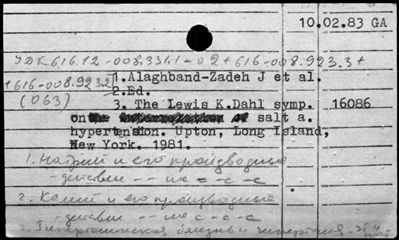 10.02.83 GA
УДК 616.12-008.331.1-02+616-008.923.3+
+616-008.923.2
(063)
1.Alaghband-Zadeh J et al.
2.Ed.
3. The Lewis K.Dahl symp. 16086
on salt a.
hypertension. Upton, Long Island,
New York. 1981.
1. Натрий и его производные
- действие -- на -с-с-с
2. Калий и его производные
- действие -- на с-с-с
3. Гипертоническая болезнь и гипертония -